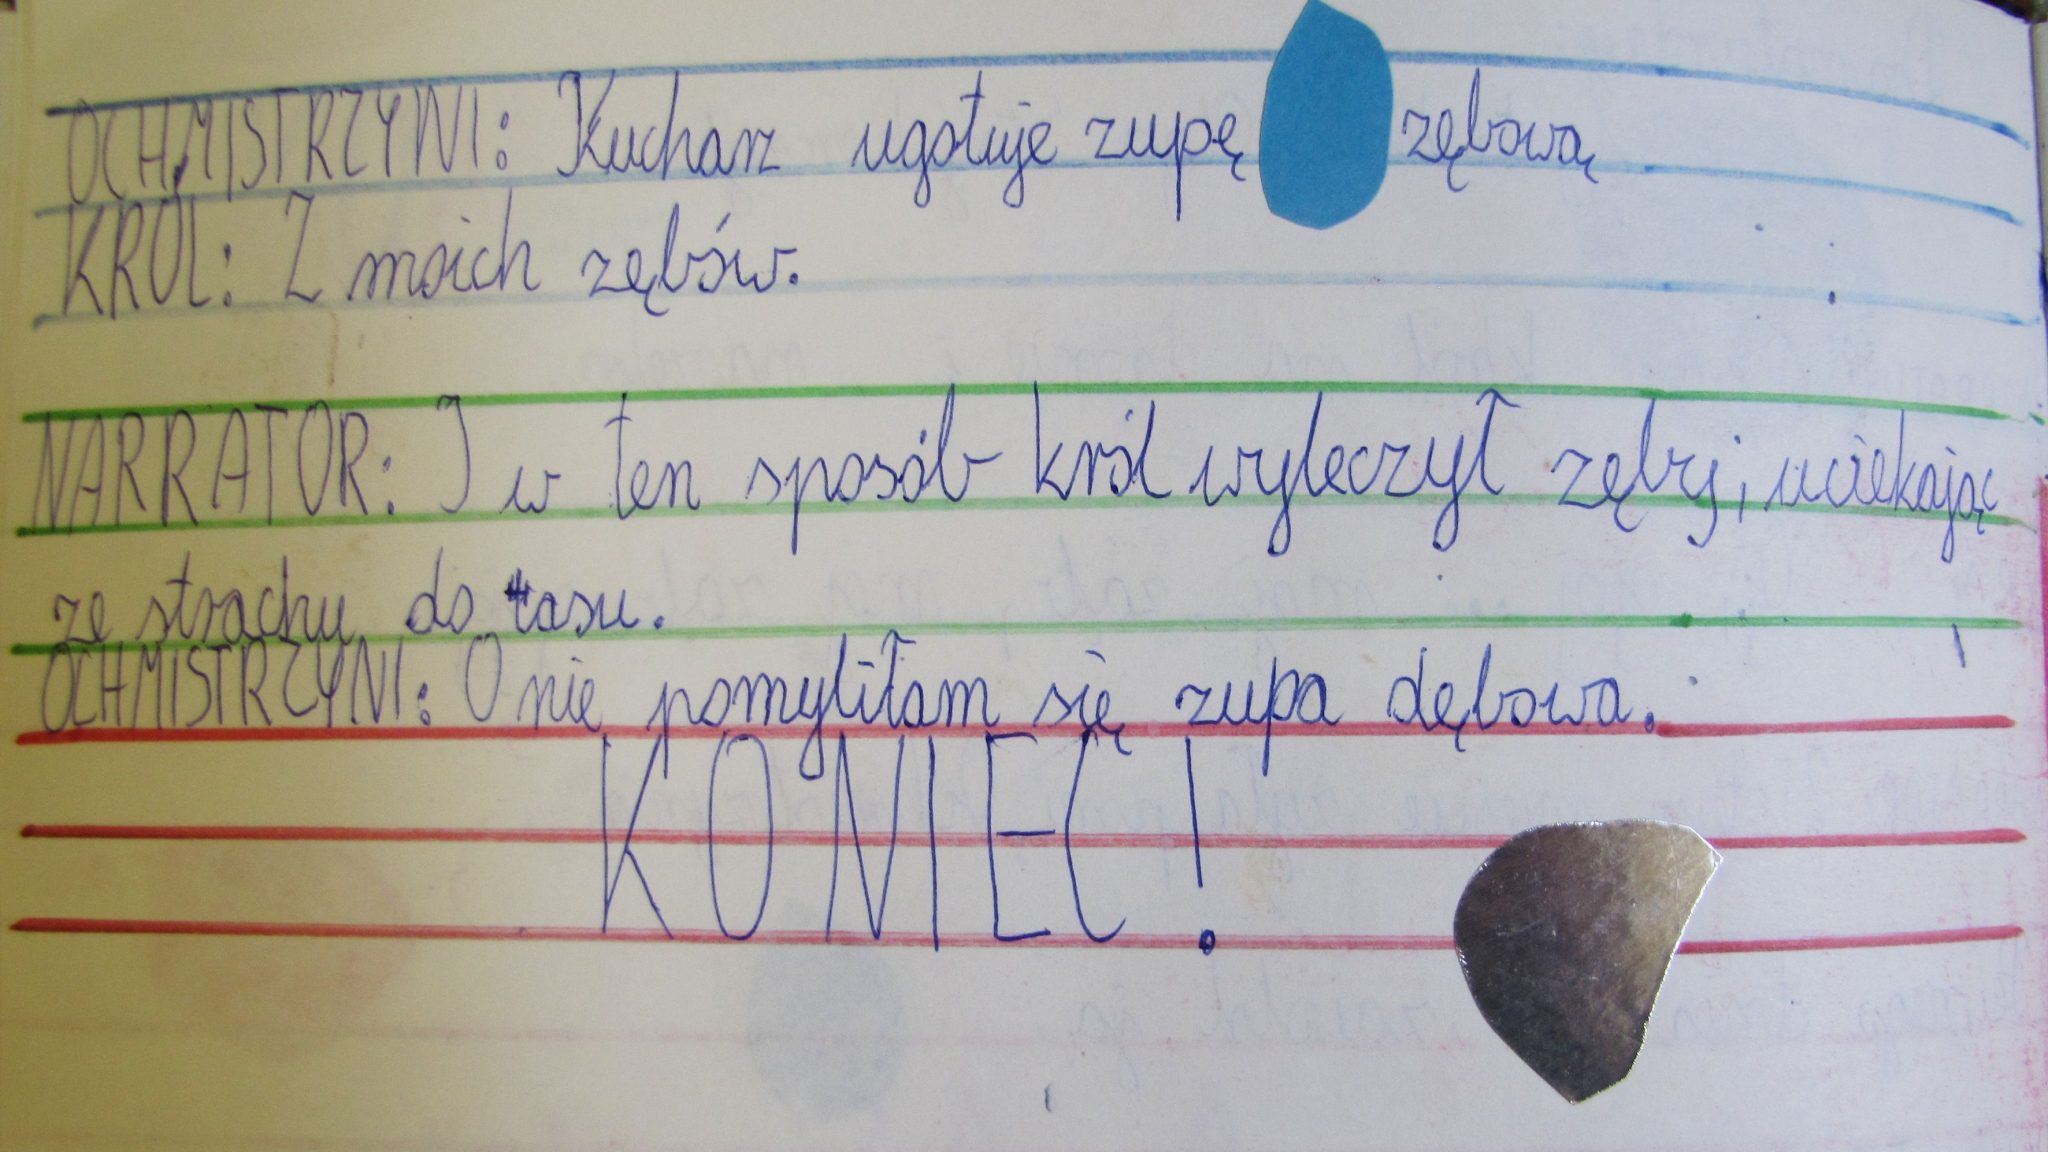 OCHMISTRZYNI: Kucharz ugotuje zupę zębową
KRÓL: Z moich zębów.
NARRATOR: I w ten sposób król wyleczył zęby, uciekając
ze strachu do łasu.
OCHMISTRZYNI: O nie pomyliłam się zupa dębowa.
KONIEC!